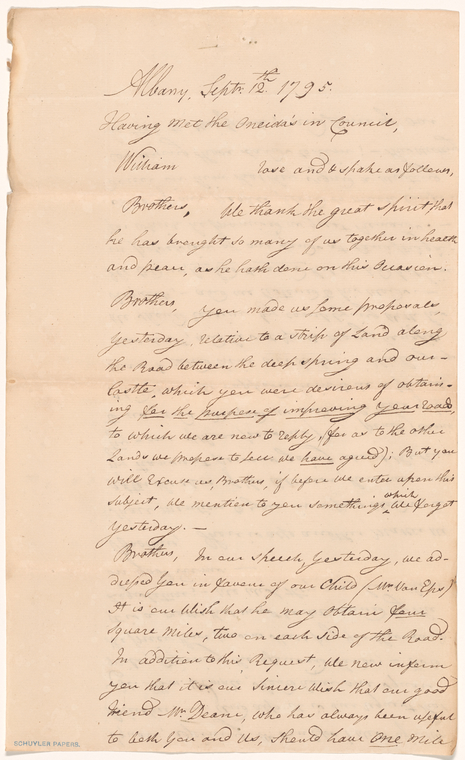 Albany, Septr. 12th. 1795.
Having met the Oneida's in Council,
William rose and & spake as follows,
Brothers, We thank the great spirit that
he has brought so many of us together in health
and peace, as he hath done on this Occasion.
Brothers, You made us some proposals,
Yesterday, relative to a strip of Land along
the Road between the deep spring and our
Castle, which you were desirous of obtain-
ing for the purpose of improving your road,
to which we are now to reply, (for as to the other
Lands we propose to sell we have agreed); But you
will Excuse us, Brothers, if before we enter upon this
subject, we mention to you somethings, which we forgot
yesterday. —
Brothers, In our speech, Yesterday, we ad-
dressed You in favour of our Child (Mr. Van Eps)
It is our Wish that he may obtain four
square Miles, two on each side of the Road.
In addition to this Request, We now inform
you that it is our Sincere Wish that our good
friend Mr. Deane, who has always been useful
to both You and Us, should have One Mile
SCHUYLER PAPERS.